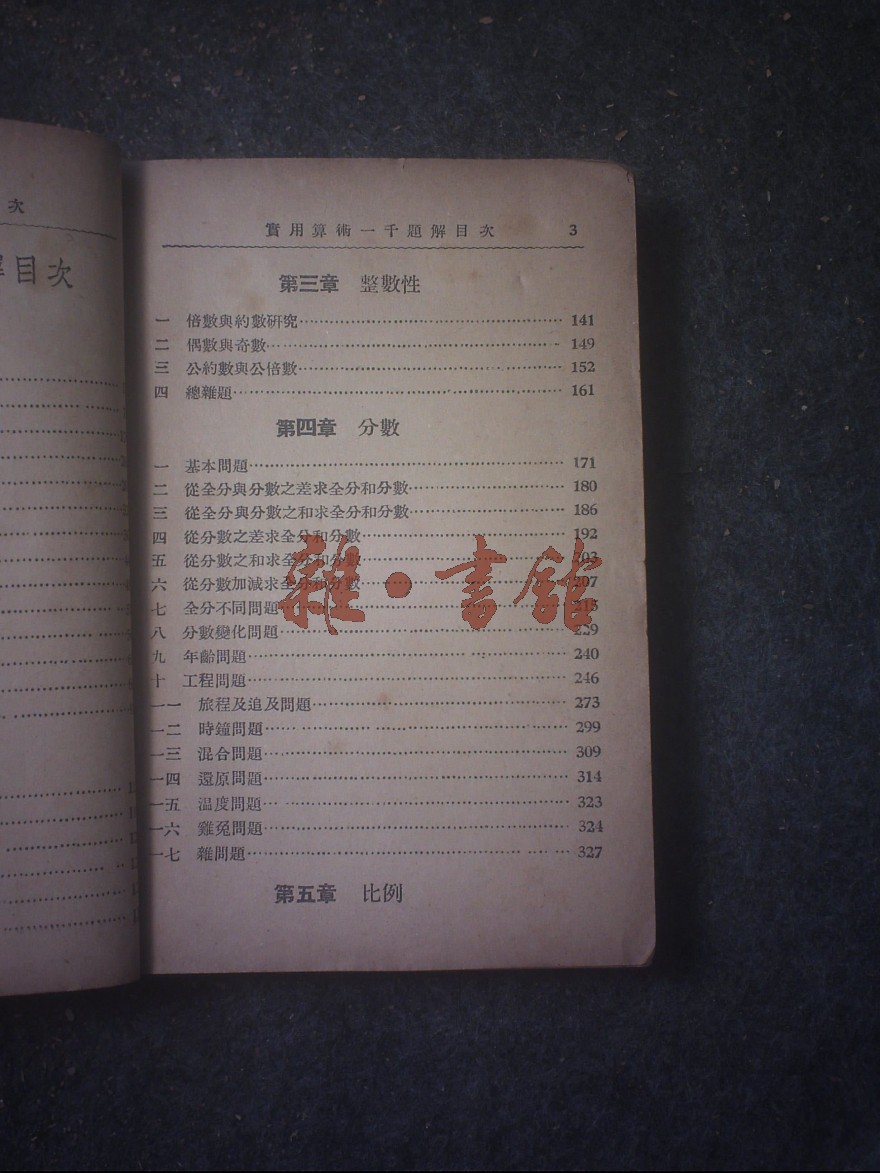 次
目次
實用算術一千題解目次 3
第三章 整數性
一 倍數與約數研究 141
二 偶數與奇數 149
三 公約數與公倍數 152
四 總雜題 161
第四章 分數
一 基本問題 171
二 從全分與分數之差求全分和分數 180
三 從全分與分數之和求全分和分數 186
四 從分數之差求全分和分數 192
五 從分數之和求全分和分數 202
六 從分數加減求全分和分數 207
七 全分不同問題 215
八 分數變化問題 229
九 年齡問題 240
十 工程問題 246
一一 旅程及追及問題 273
一二 時鐘問題 299
一三 混合問題 309
一四 還原問題 314
一五 温度問題 323
一六 雞兔問題 324
一七 雜問題 327
第五章 比例
雜·書館